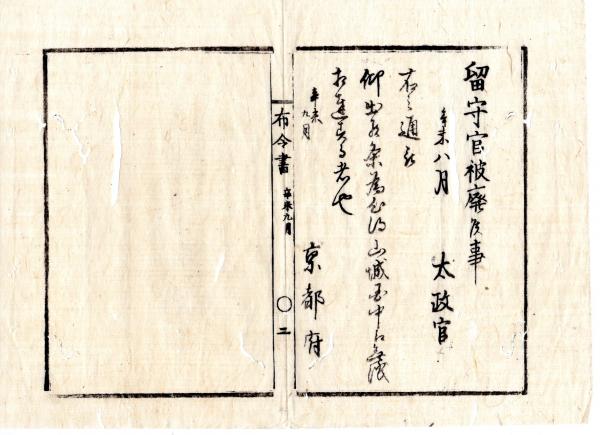 留守官被廃候事
辛未八月　太政官
右之通被
仰出候条為心得山城国中江無洩
相達する者也
辛未九月　京都府
布令書 辛未九月 〇二